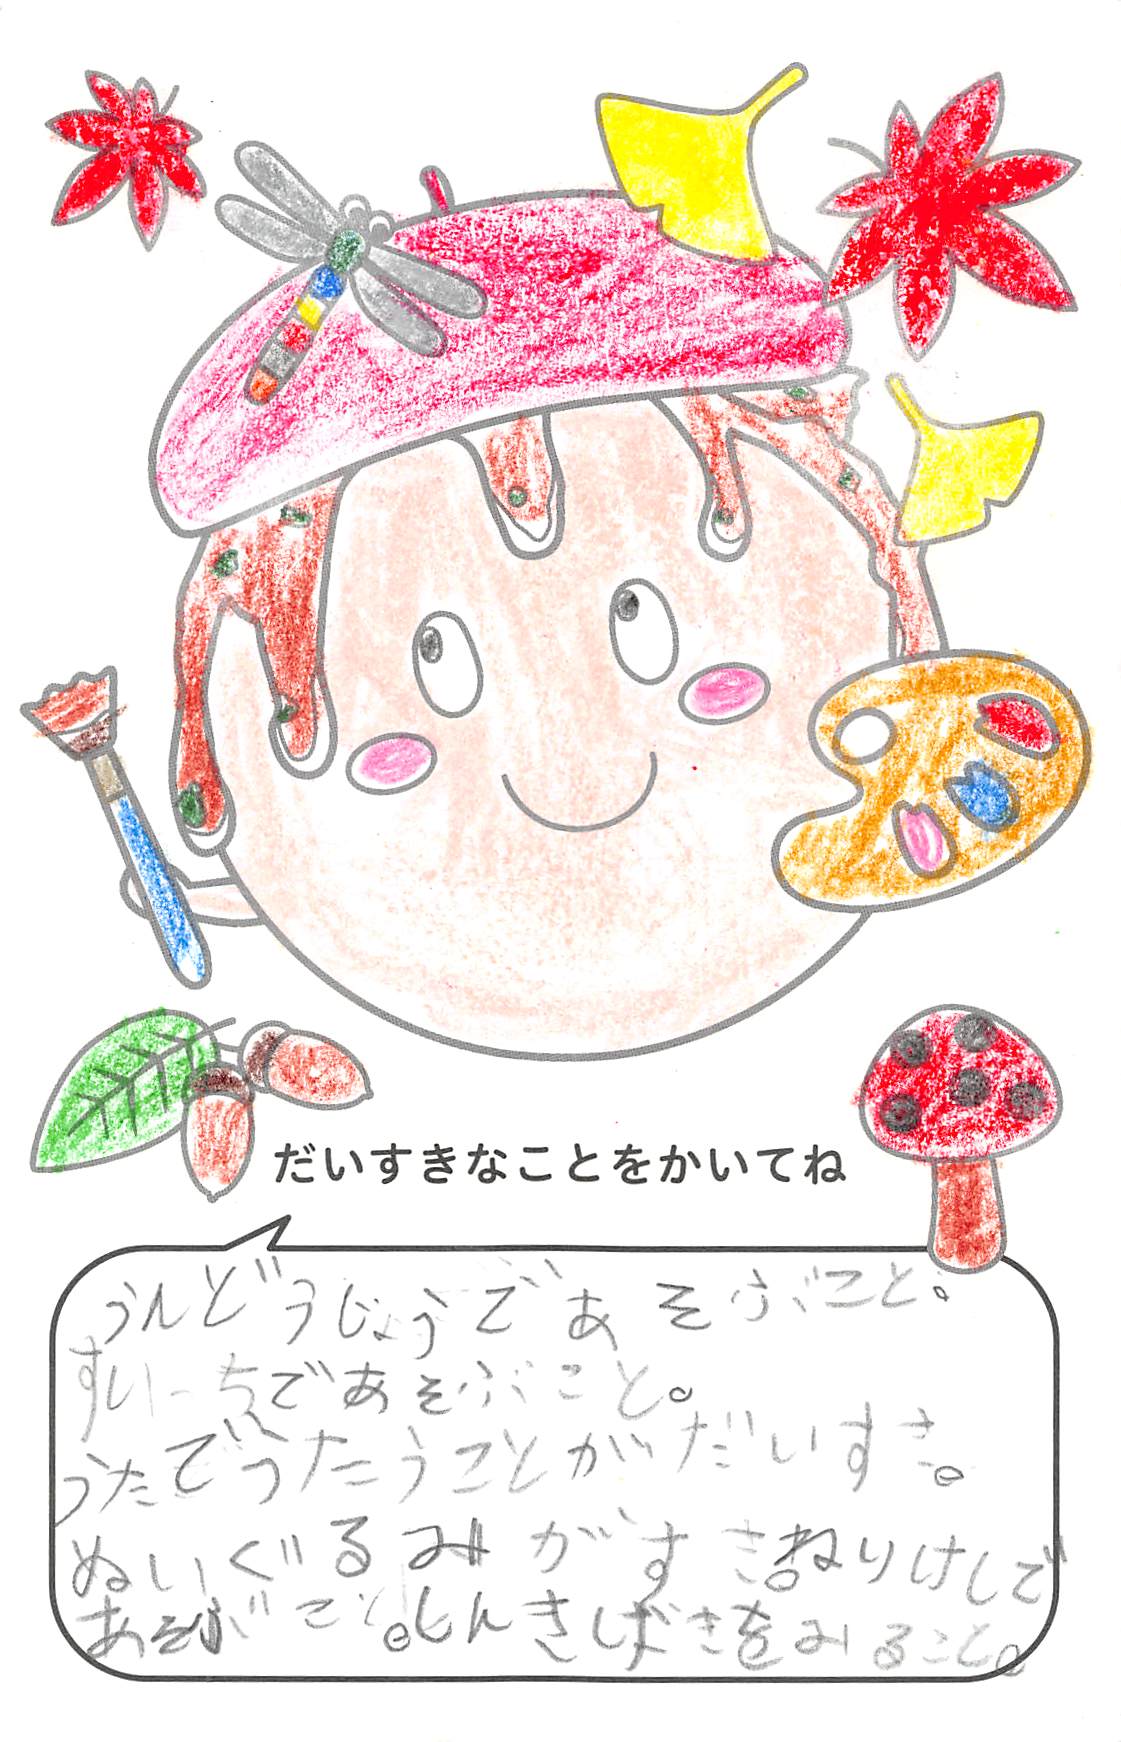 だいすきなことをかいてね
うんどうじょうであそぶこと。
すいーちであそぶこと。
うたでうたうことがだいすき。
ぬいぐるみがすき。ねりけしで
あそぶこと。しんきばきをみること。